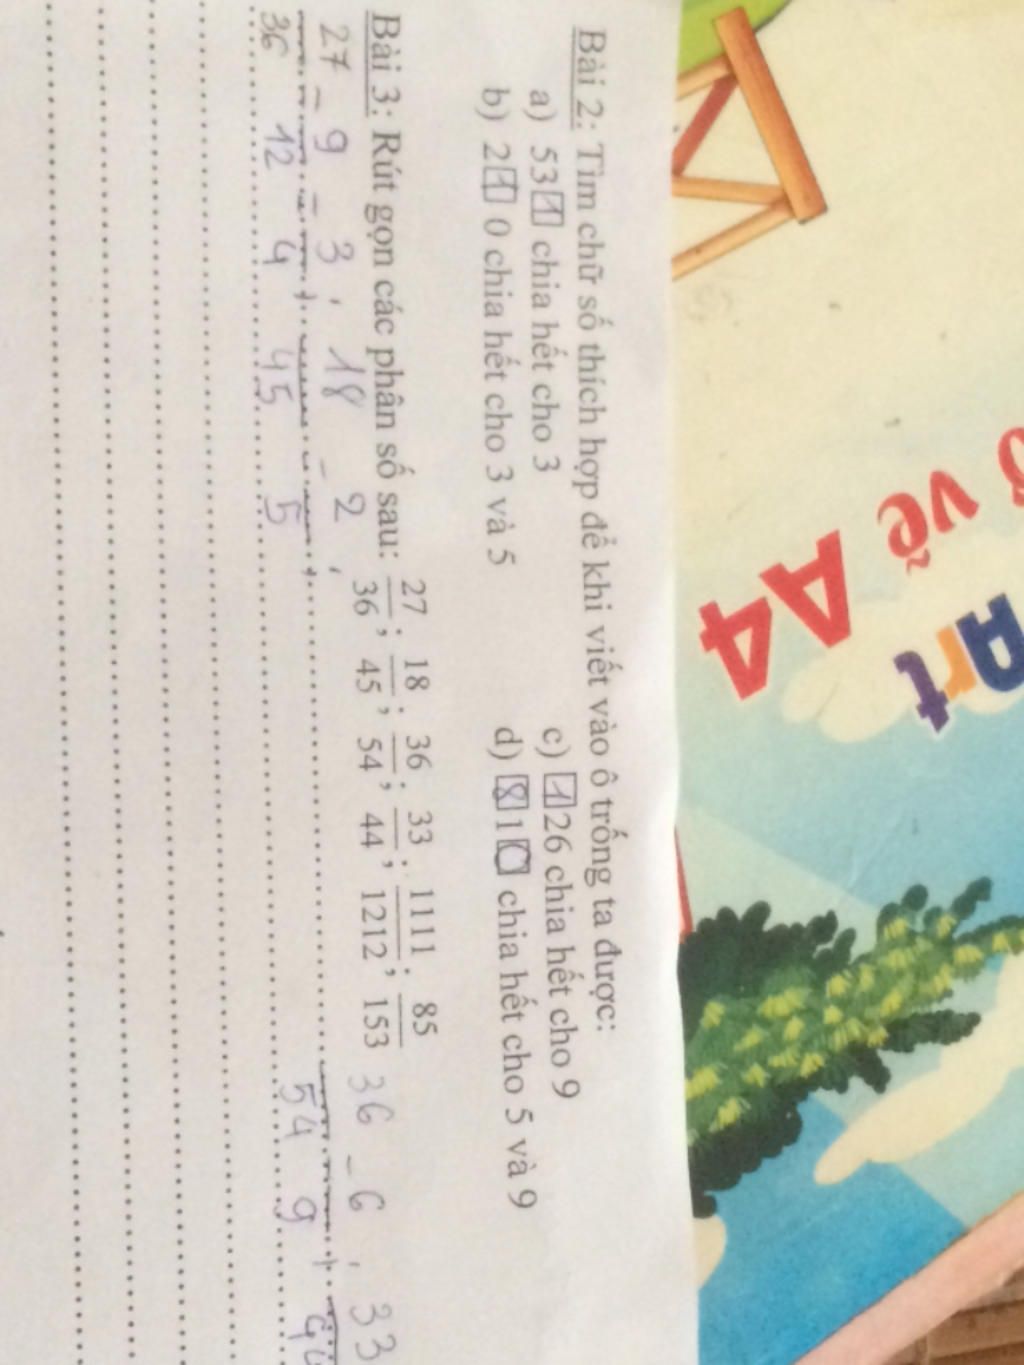 Bài 2: Tìm chữ số thích hợp để khi viết vào ô trống ta được:
a) 531 chia hết cho 3
c) 126 chia hết cho 9
b) 210 chia hết cho 3 và 5
d) 810 chia hết cho 5 và 9
Bài 3: Rút gọn các phân số sau: 27/36; 18/45; 36/54; 33/44; 1111/1212; 85/153
27/36 = 9/12 = 3/4, 18/45 = 2/5, 36/54 = 6/9, 33
vẽ A4
Art